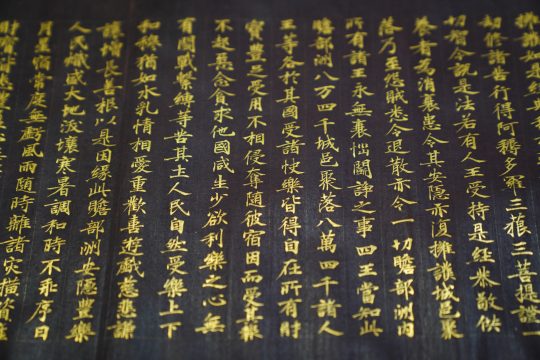 擁護如是經
劫修諸苦行得阿耨多羅三藐三菩提證一
切智今說是法若有人王受持是經恭敬供
養者為消衰患令其安隱亦復擁護城邑聚
落乃至怨賊悉令退散亦令一切贍部洲內
所有諸王永無衰惱鬪諍之事四王當知此
贍部洲八万四千城邑聚落八萬四千諸人
王等各於其國受諸快樂皆得自在所有財
寶豐足受用不相侵奪隨彼宿因而受其報
不起惡念貪求他國咸生少欲利樂之心無
有鬪戰繫縛等苦其土人民自然受樂上下
和穆猶如水乳情相愛重歡喜遊戲慈悲謙
讓增長善根以是因緣此贍部洲安隱豐樂
人民熾盛大地沃壤寒暑調和時不乖序日
月星宿常度無虧風雨隨時離諸災橫資產
財寶皆悉豐